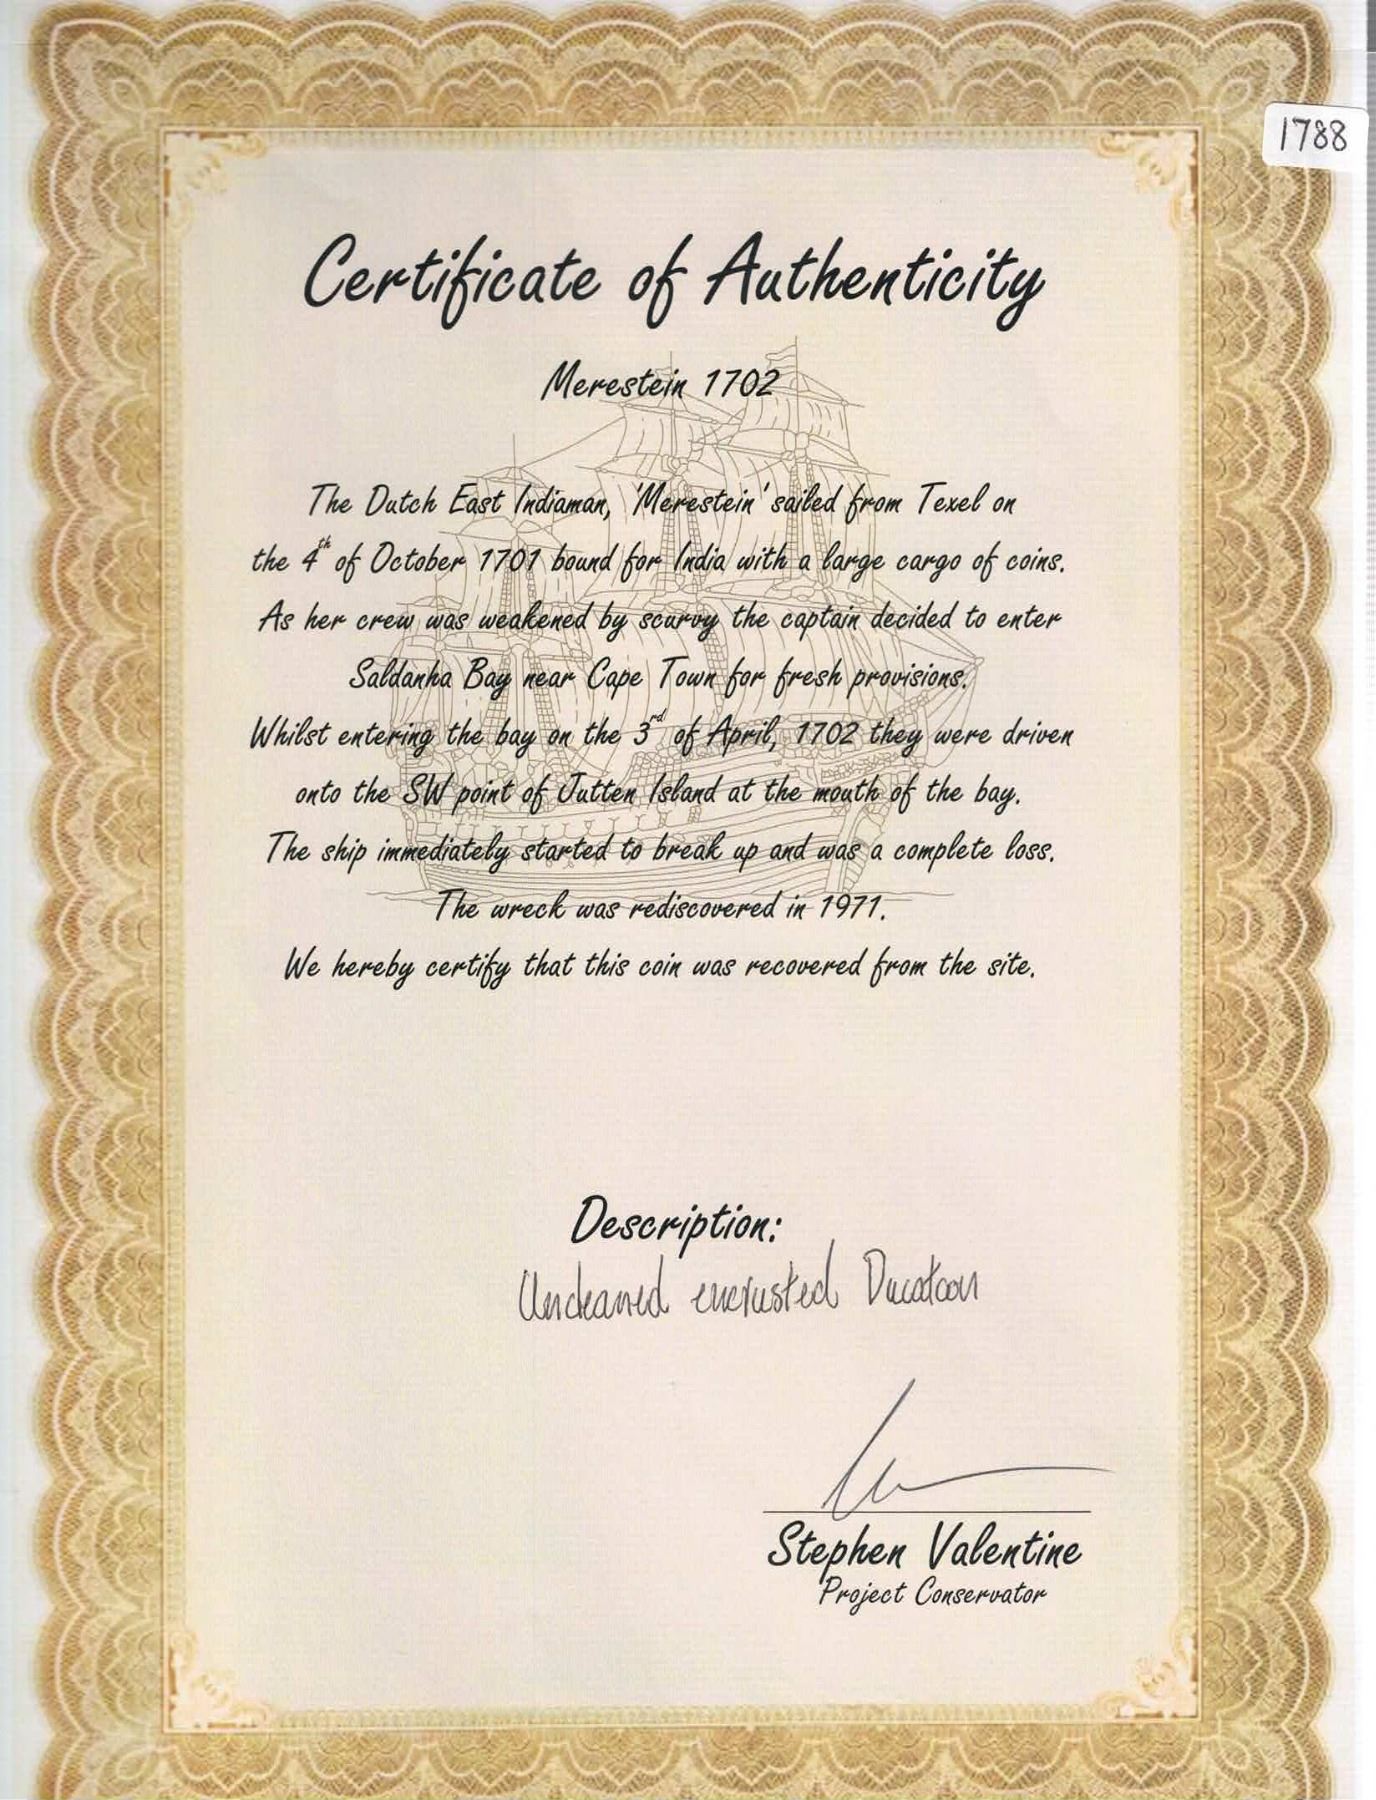 1788
Certificate of Authenticity
Merestein 1702
The Dutch East Indiaman, 'Merestein' sailed from Texel on
the 4th of October 1701 bound for India with a large cargo of coins.
As her crew was weakened by scurvy the captain decided to enter
Saldanha Bay near Cape Town for fresh provisions.
Whilst entering the bay on the 3rd of April, 1702 they were driven
onto the SW point of Jutten Island at the mouth of the bay.
The ship immediately started to break up and was a complete loss.
The wreck was rediscovered in 1971.
We hereby certify that this coin was recovered from the site.
Description:
Uncleaned encrusted Ducatoon
Stephen Valentine
Project Conservator